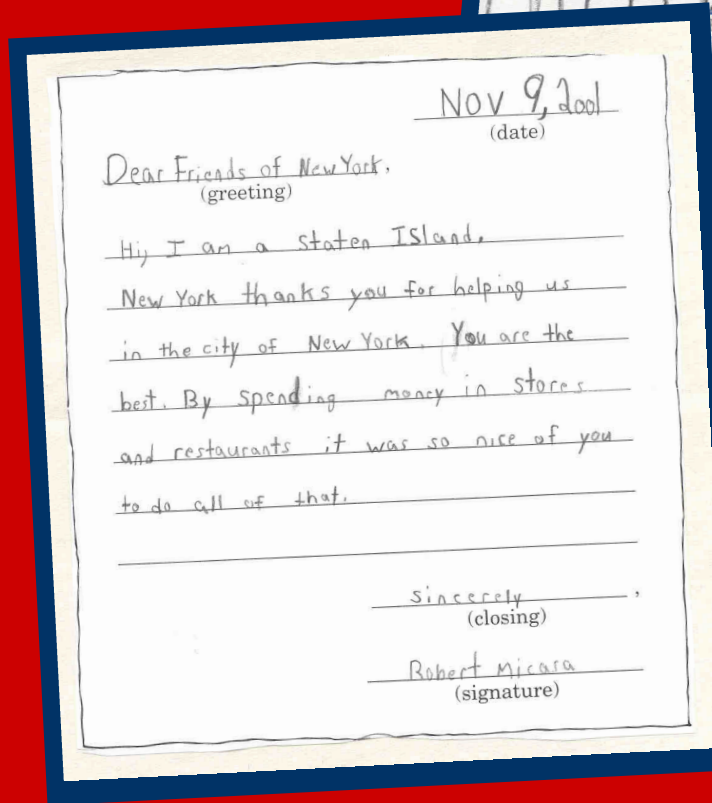 Nov 9, 2001
(date)
Dear Friends of New York,
(greeting)
Hi, I am a Staten Island.
New York thanks you for helping us
in the city of New York. You are the
best. By spending money in stores
and restaurants it was so nice of you
to do all of that.
sincerely,
(closing)
Robert Micara
(signature)